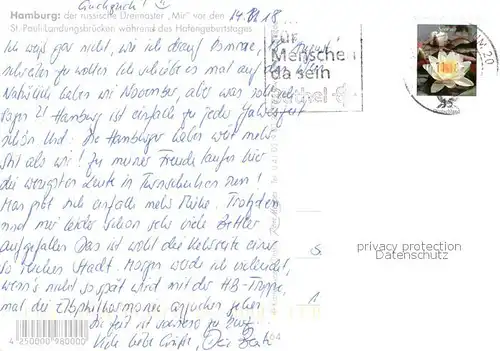 Guckguck!
Hamburg: der russische Dreimaster „Mir" vor den
St. Pauli-Landungsbrücken während des Hafengeburtstages
14. 18
Ich weiß gar nicht, wie ich drauf komme, Dir
schicken zu wollen. Ich schreibe es mal auf
Natürlich haben wir November, aber was soll ich
sagen?! Hamburg ist einfach zu jeder Jahreszeit
schön und. Die Hamburger haben weit mehr
Stil als wir! Zu meiner Freude laufen hier
die wenigsten Leute in Turnschuhen rum!
Man gibt sich einfach mehr Mühe. Trotzdem
sind mir leider schon sehr viele Bettler
aufgefallen. Das ist wohl die Kehrseite einer
so reichen Stadt. Morgen werde ich vielleicht,
wenn's nicht so spät wird mit der HB-Truppe,
mal die Elbphilharmonie angucken gehen.
Die Zeit ist sowieso zu kurz.
Viele liebe Grüße, Deine Beate
FÜR
Mensche
da sein
Bethel
95
privacy protection
Datenschutz
4 250000 980000
64